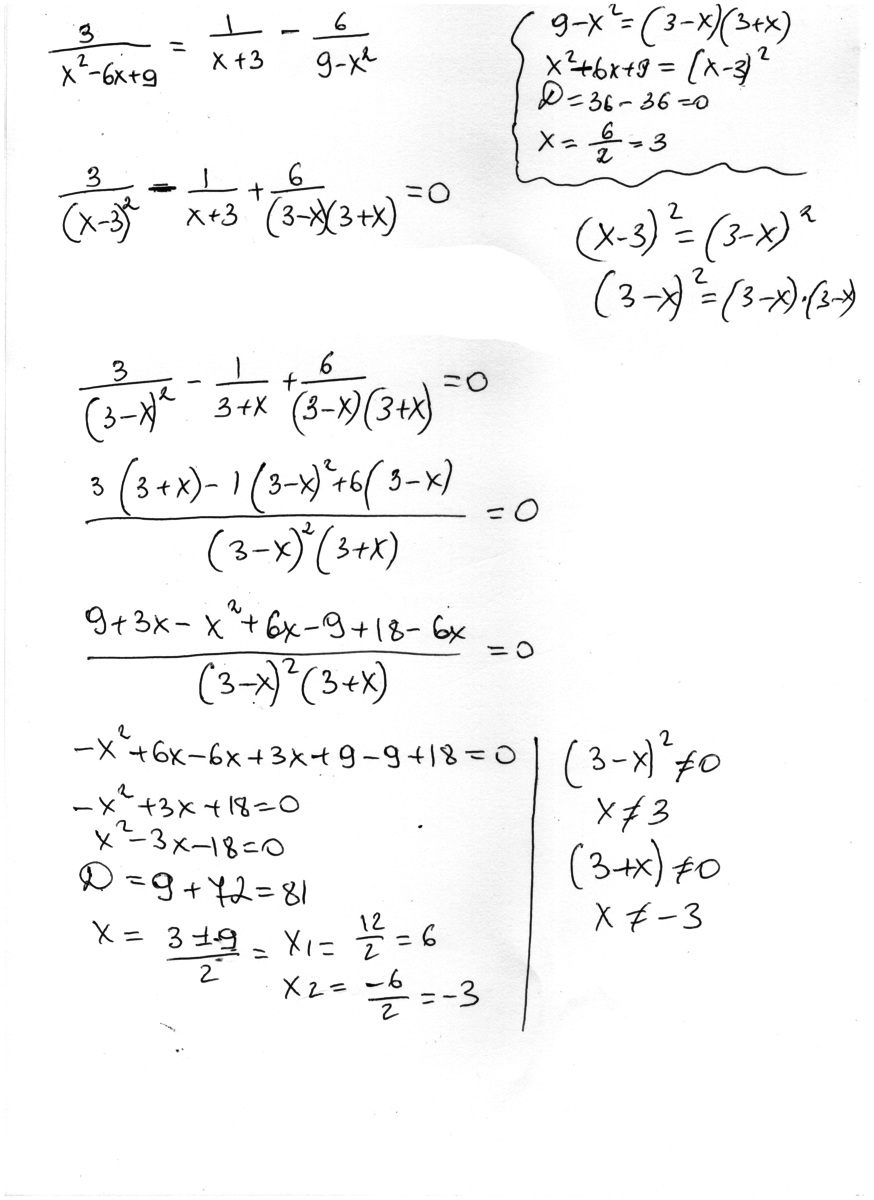 3/(x²-6x+9) = 1/(x+3) - 6/(9-x²)
9-x²=(3-x)(3+x)
x²+6x+9=(x-3)²
D=36-36=0
x=6/2=3
3/(x-3)² - 1/(x+3) + 6/((3-x)(3+x)) =0
(x-3)²=(3-x)²
(3-x)²=(3-x)·(3-x)
3/(3-x)² - 1/(3+x) + 6/((3-x)(3+x)) =0
(3(3+x)-1(3-x)²+6(3-x))/((3-x)²(3+x)) =0
(9+3x-x²+6x-9+18-6x)/((3-x)²(3+x)) =0
-x²+6x-6x+3x+9-9+18=0
-x²+3x+18=0
x²-3x-18=0
D=9+72=81
x= (3±9)/2 = x1= 12/2 =6
x2= -6/2 =-3
(3-x)²≠0
x≠3
(3+x)≠0
x≠-3